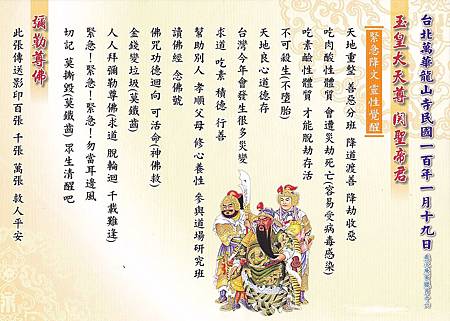 台北萬華龍山寺民國一百年一月十九日
玉皇大天尊 關聖帝君
緊急降文 靈性覺醒
天地重整 善惡分班 降道渡善 降劫收惡
吃肉酸性體質 會遭災劫死亡(容易受病毒感染)
吃素鹼性體質 才能脫劫存活
不可殺生(不墮胎)
天地良心道德存
台灣今年會發生很多災變
求道 吃素 積德 行善
幫助別人 孝順父母 修心養性 參與道場研究班
讀佛經 念佛號
佛咒功德迴向 可活命(神佛救)
金錢變垃圾(莫鐵齒)
人人拜彌勒尊佛(求道 脫輪迴 千載難逢)
緊急！緊急！緊急！勿當耳邊風
切記 莫撕毀(莫鐵齒) 眾生清醒吧
彌勒尊佛
此張傳送影印百張 千張 萬張 救人平安